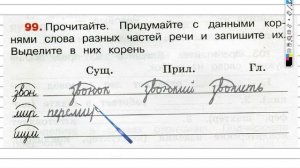 99. Прочитайте. Придумайте с данными кор-
нями слова разных частей речи и запишите их.
Выделите в них корень
Сущ. Прил. Гл.
звон звонок звонкий звонить
мир перемир
шум